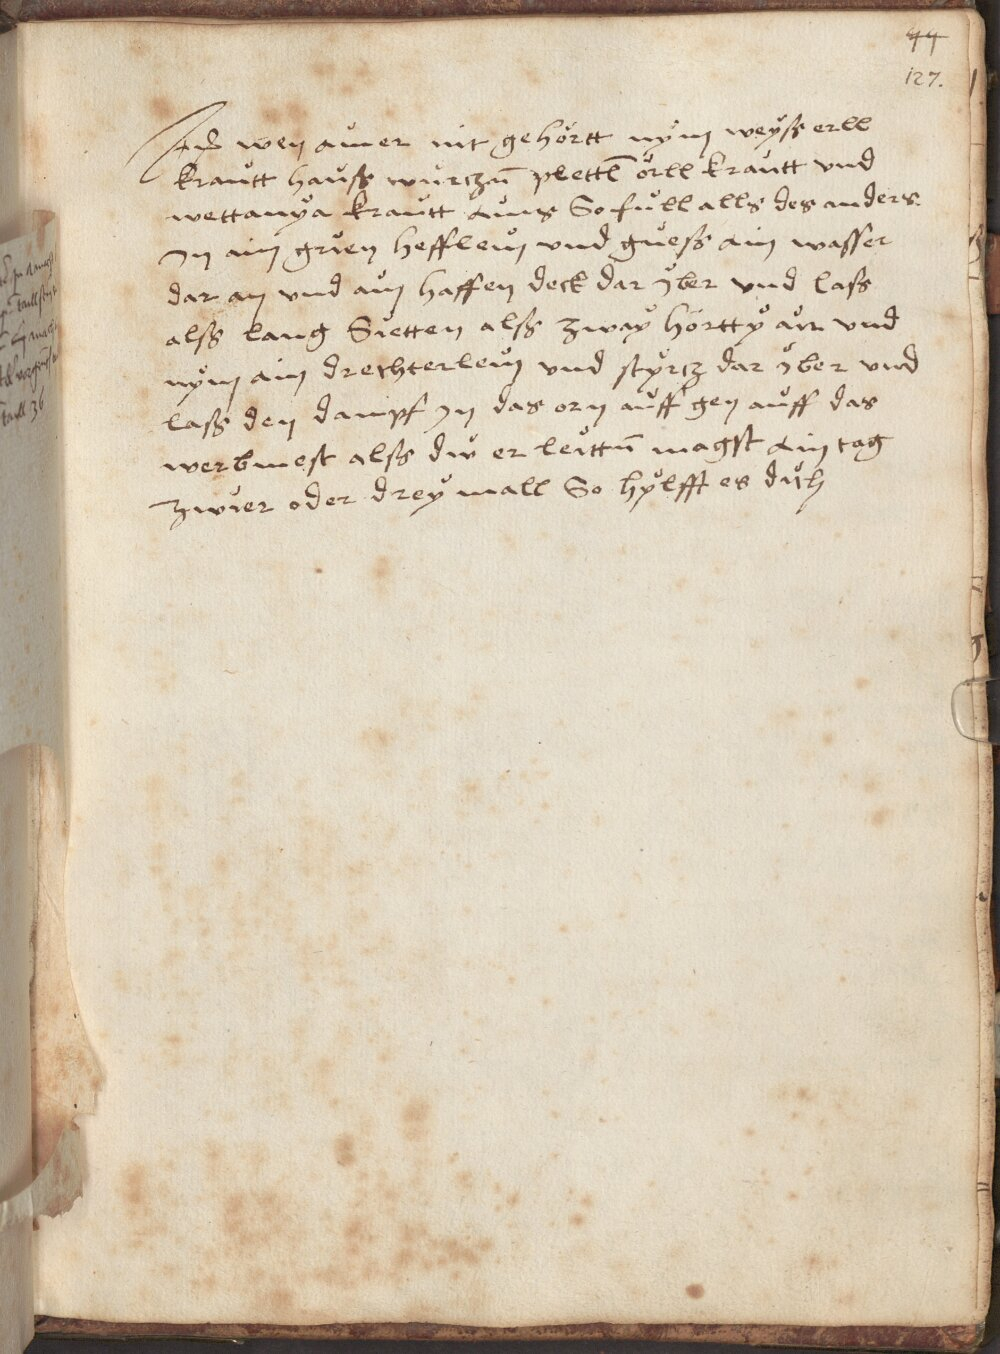 44
127.
Und wen ainer nit gehörtt nÿm weÿss erll
krautt hauss wurczn̄ plettl örll krautt und
wettanÿa krautt ains So füll alls des anders
In ain gruen hefflein und guess ain wasser
dar an und ain haffen deck dar yber und lass
alss lang Sietten alss zwaÿ hörttÿ air und
nÿm ain drechterlein und stÿrcz dar yber und
lass den dampf In das orn auff gen auff das
werbmest alss du er leittn̄ magst ain tag
zwier oder dreÿ mall So hÿlfft es dich